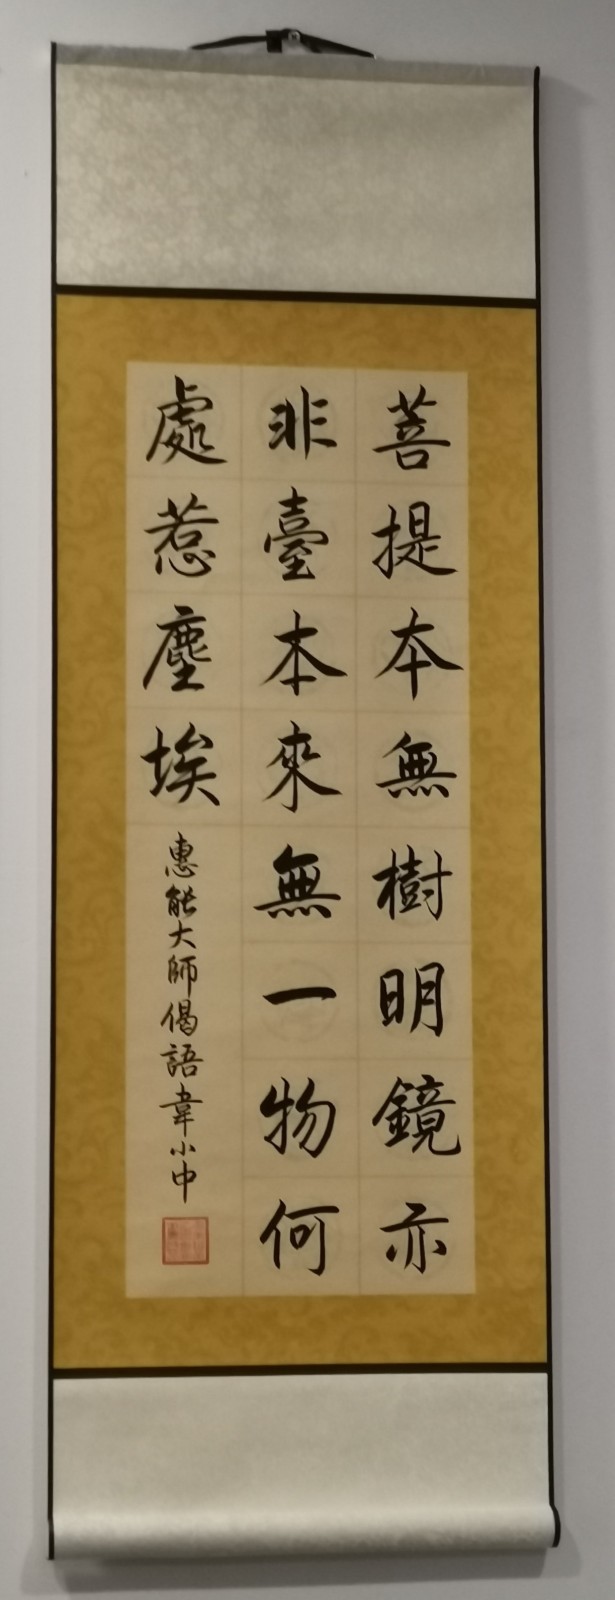 菩提本無樹明鏡亦
非臺本來無一物何
處惹塵埃
惠能大師偈語韋小中